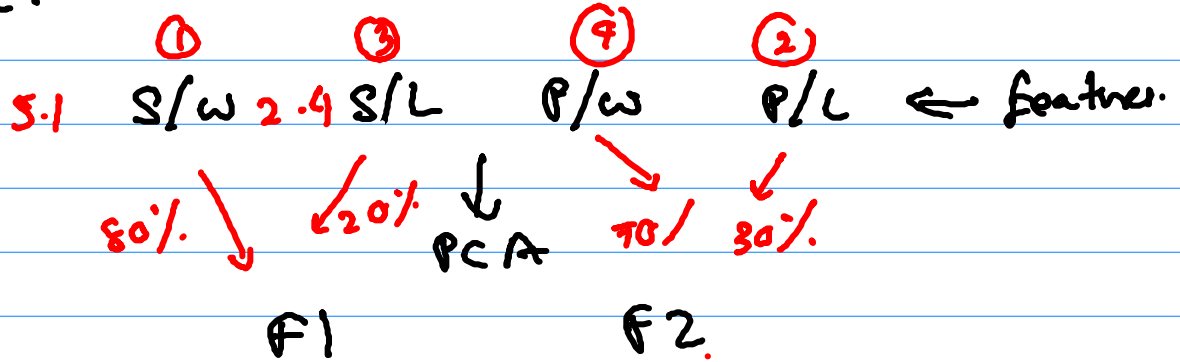 ① ③ ④ ②
5.1 S/W 2.4 S/L P/W P/L ← features.
80% 20% 70/ 30%.
PCA
F1 F2.